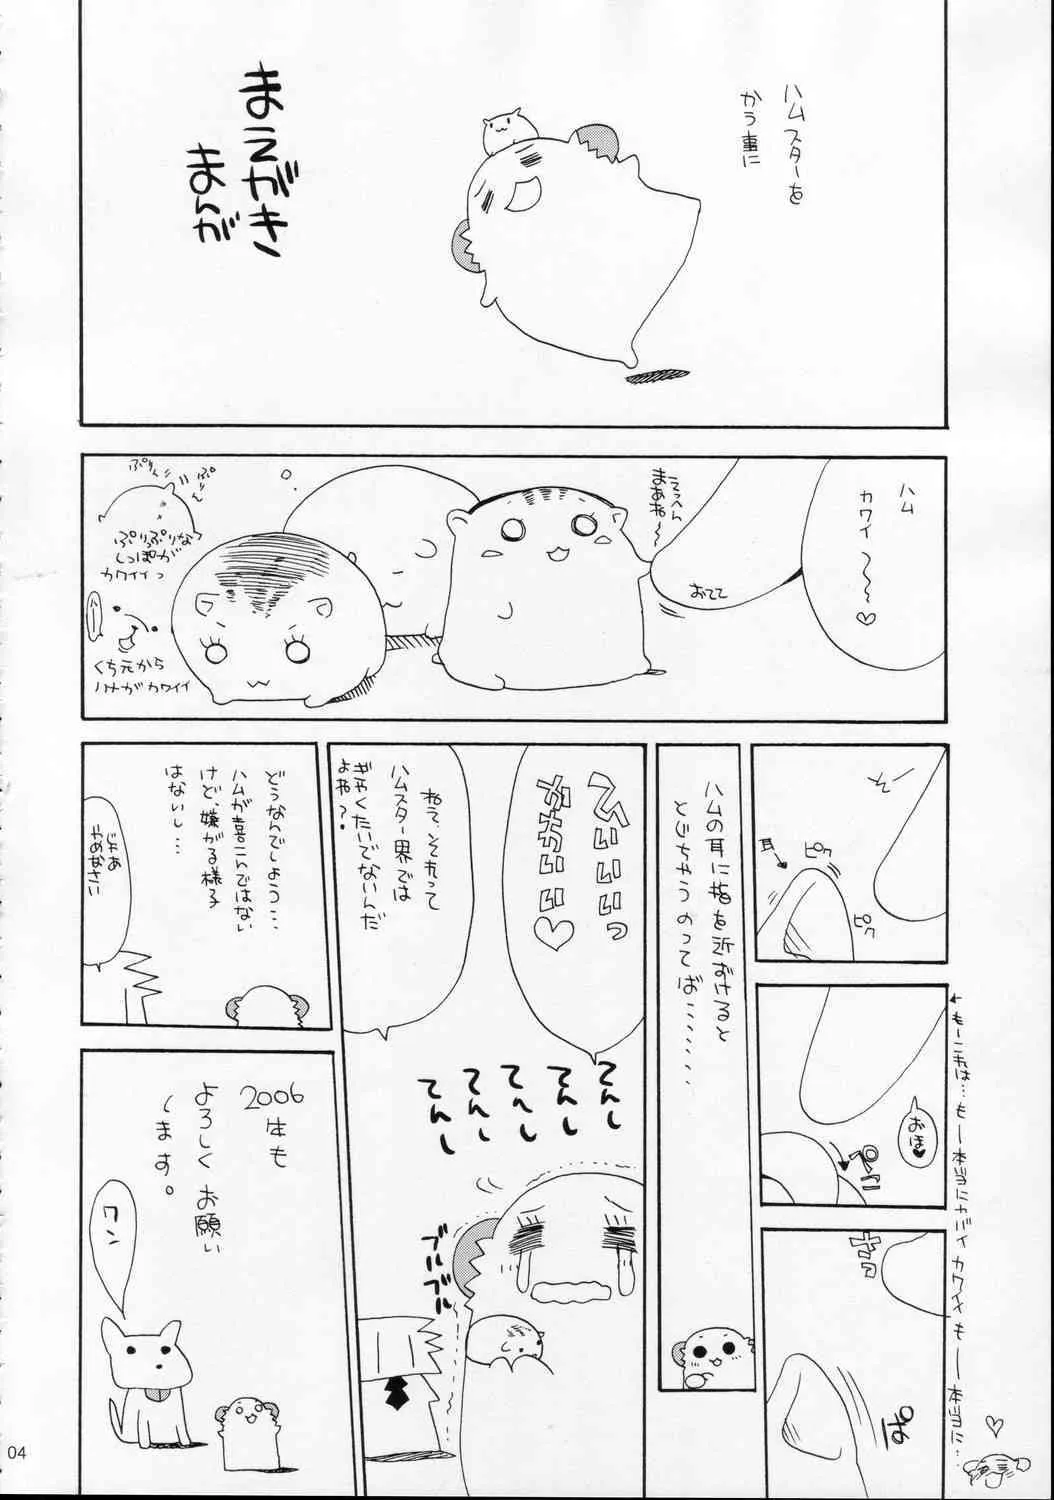 ハムスターを
かう事に
まえがき
まんが
ハム
カワイ〜〜♡
おてて
まあね〜
ぷりん
ぷりっぷりな
しっぽが
カワイイっ
くち元から
ハナがカワイイ
耳
ピク
ピク
←もーこれは…もー本当にヤバイカワイイもー本当に…
おほ♥
ぺこ
ハムの耳に指を近ずけると
とじちゃうのってば………
へいいいっ
♡
てんし
てんし
てんし
てんし
てんし
ブルブル
ブルブル
ねえ、それって
ハムスター界では
ぎゃくたいでないんだ
よね？
どうなんでしょう…
ハムが喜こんではない
けど、嫌がる様子
はないし…
じゃあ
やめなさい
2006年も
よろしくお願い
します。
ワン
04